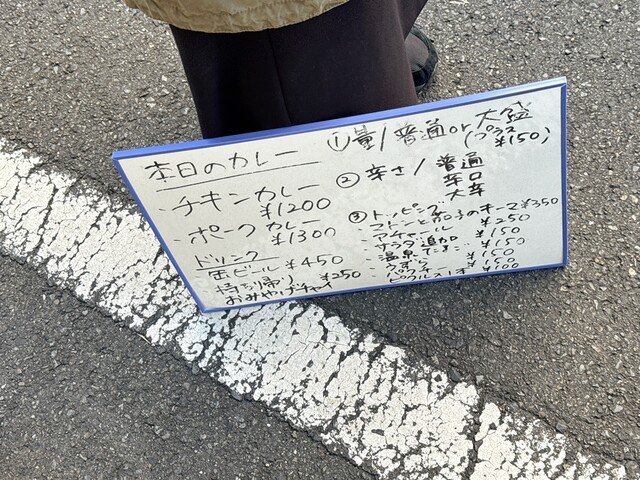 本日のカレー
・チキンカレー
¥1200
・ポークカレー
¥1300
ドリンク
缶ビール ¥450
持ち帰り
おみやげチャイ ¥250
①量/普通or大盛
(プラス
¥150)
② 辛さ/ 普通
辛口
大辛
③トッピング
・マトンと茄子のキーマ¥350
・アチャール ¥250
・サラダ追加 ¥150
・温泉たまご ¥150
・ ¥150
・ピクルス1本 ¥100